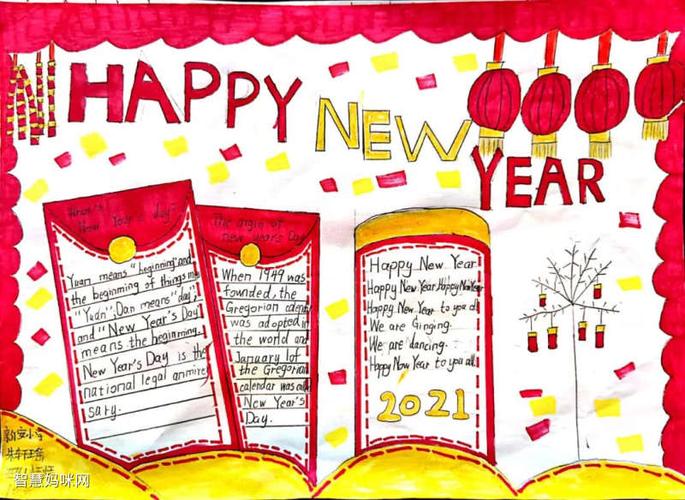 HAPPY
NEW
YEAR
New Year's day
The origin of
new year's Day
Yuan means "beginning" and
the beginning of things
"Yuan"; Dan means "day";
and "New Year's Day
means the beginning.
New Year's Day is the
national legal
sary.
When 1949 was
founded, the
Gregorian
was adopted in
the world and
January 1 of
the Gregorian
calendar was
New Year's
Day.
Happy New Year
Happy New Year Happy New Year
Happy New Year to you all
We are Ginging.
We are dancing.
Happy New Year to you all
2021
智慧妈咪网